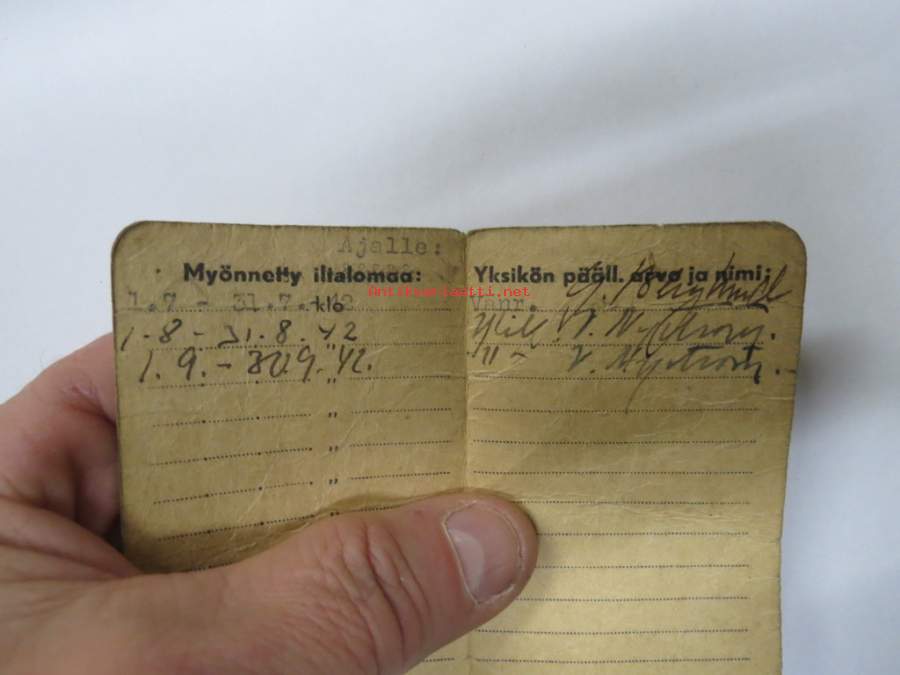 Ajalle:
Myönnetty iltalomaa: Yksikön pääll. arvo ja nimi:
antiikvariaatti.net
1.7 - 31.7. klo Vänr.
1.8 - 31.8.42 V. Nyström.
1.9. - 30.9. 42. " - V. Nyström.
"
"
"
"